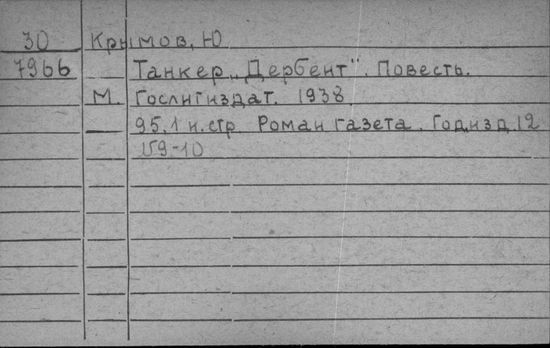 30 Крымов, Ю
7966 Танкер „Дербент". Повесть.
М. Гослитиздат. 1938
95, 1 н. стр. Роман газета. Год изд. 12
№9-10